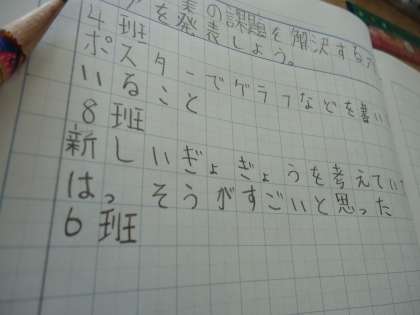 表の課題を解決する
を発表しよう。
4班
ポスターでグラフなどを書い
いること
8班
新しいぎょぎょうを考えてい
はっそうがすごいと思った
6班